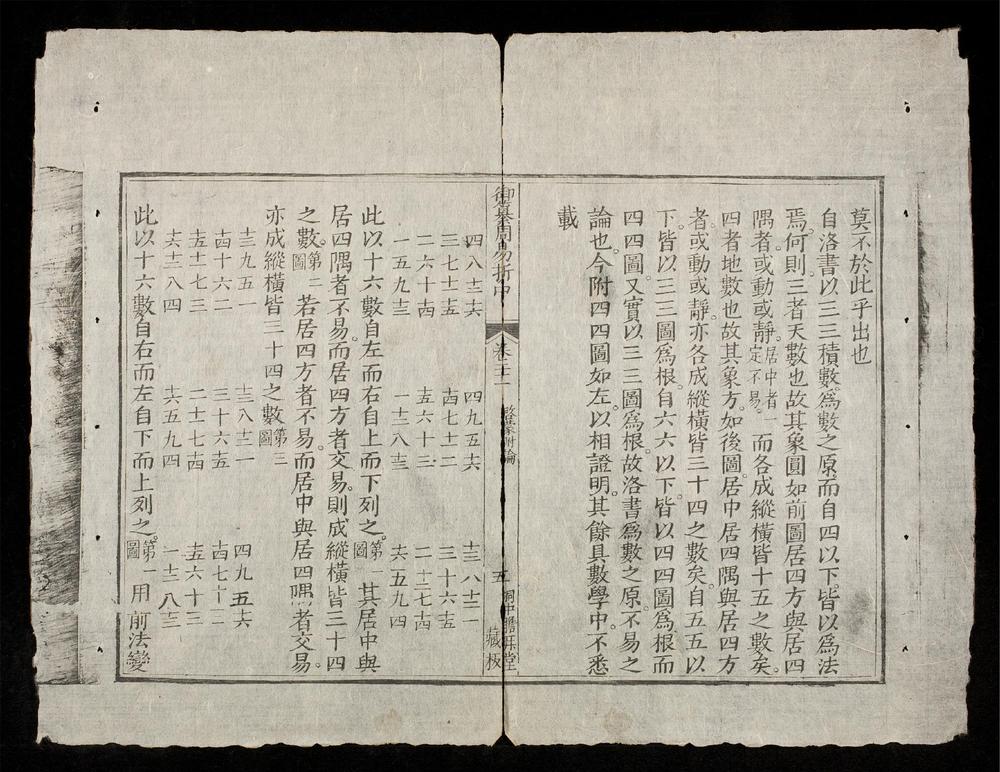 莫不於此乎出也
自洛書以三三積數。為數之原。而自四以下。皆以為法
焉。何則。三者天數也。故其象圓。如前圖居四方與居四
隅者。或動或靜。居中者一定不易。而各成縱橫皆十五之數矣。
四者地數也。故其象方。如後圖。居中居四隅。與居四方
者。或動或靜。亦各成縱橫皆三十四之數矣。自五五以
下。皆以三三圖為根。自六六以下。皆以四四圖為根。而
四四圖。又實以三三圖為根。故洛書為數之原。不易之
論也。今附四四圖如左。以相證明。其餘具數學中。不悉
載
御纂周易折中
卷二十一
啟蒙附論
五
藏板
四八十二十六 四九五十六 十三八十二一
三七十一十五 十四七十一二 三十六十五
二六十十四 十五六十三 二十一七十四
一五九十三 一十二八十三 十六五九四
此以十六數自左而右自上而下列之。第一圖 其居中與
居四隅者不易。而居四方者交易。則成縱橫皆三十四
之數。第二圖 若居四方者不易。而居中與居四隅者交易。
亦成縱橫皆三十四之數第三圖
十三九五一 十三八十二一 四九五十六
十四十六二 三十六十五 十四七十一二
十五十一七三 二十一七十四 十五六十三
十六十二八四 十六五九四 一十二八十三
此以十六數自右而左自下而上列之。第一圖 用前法變